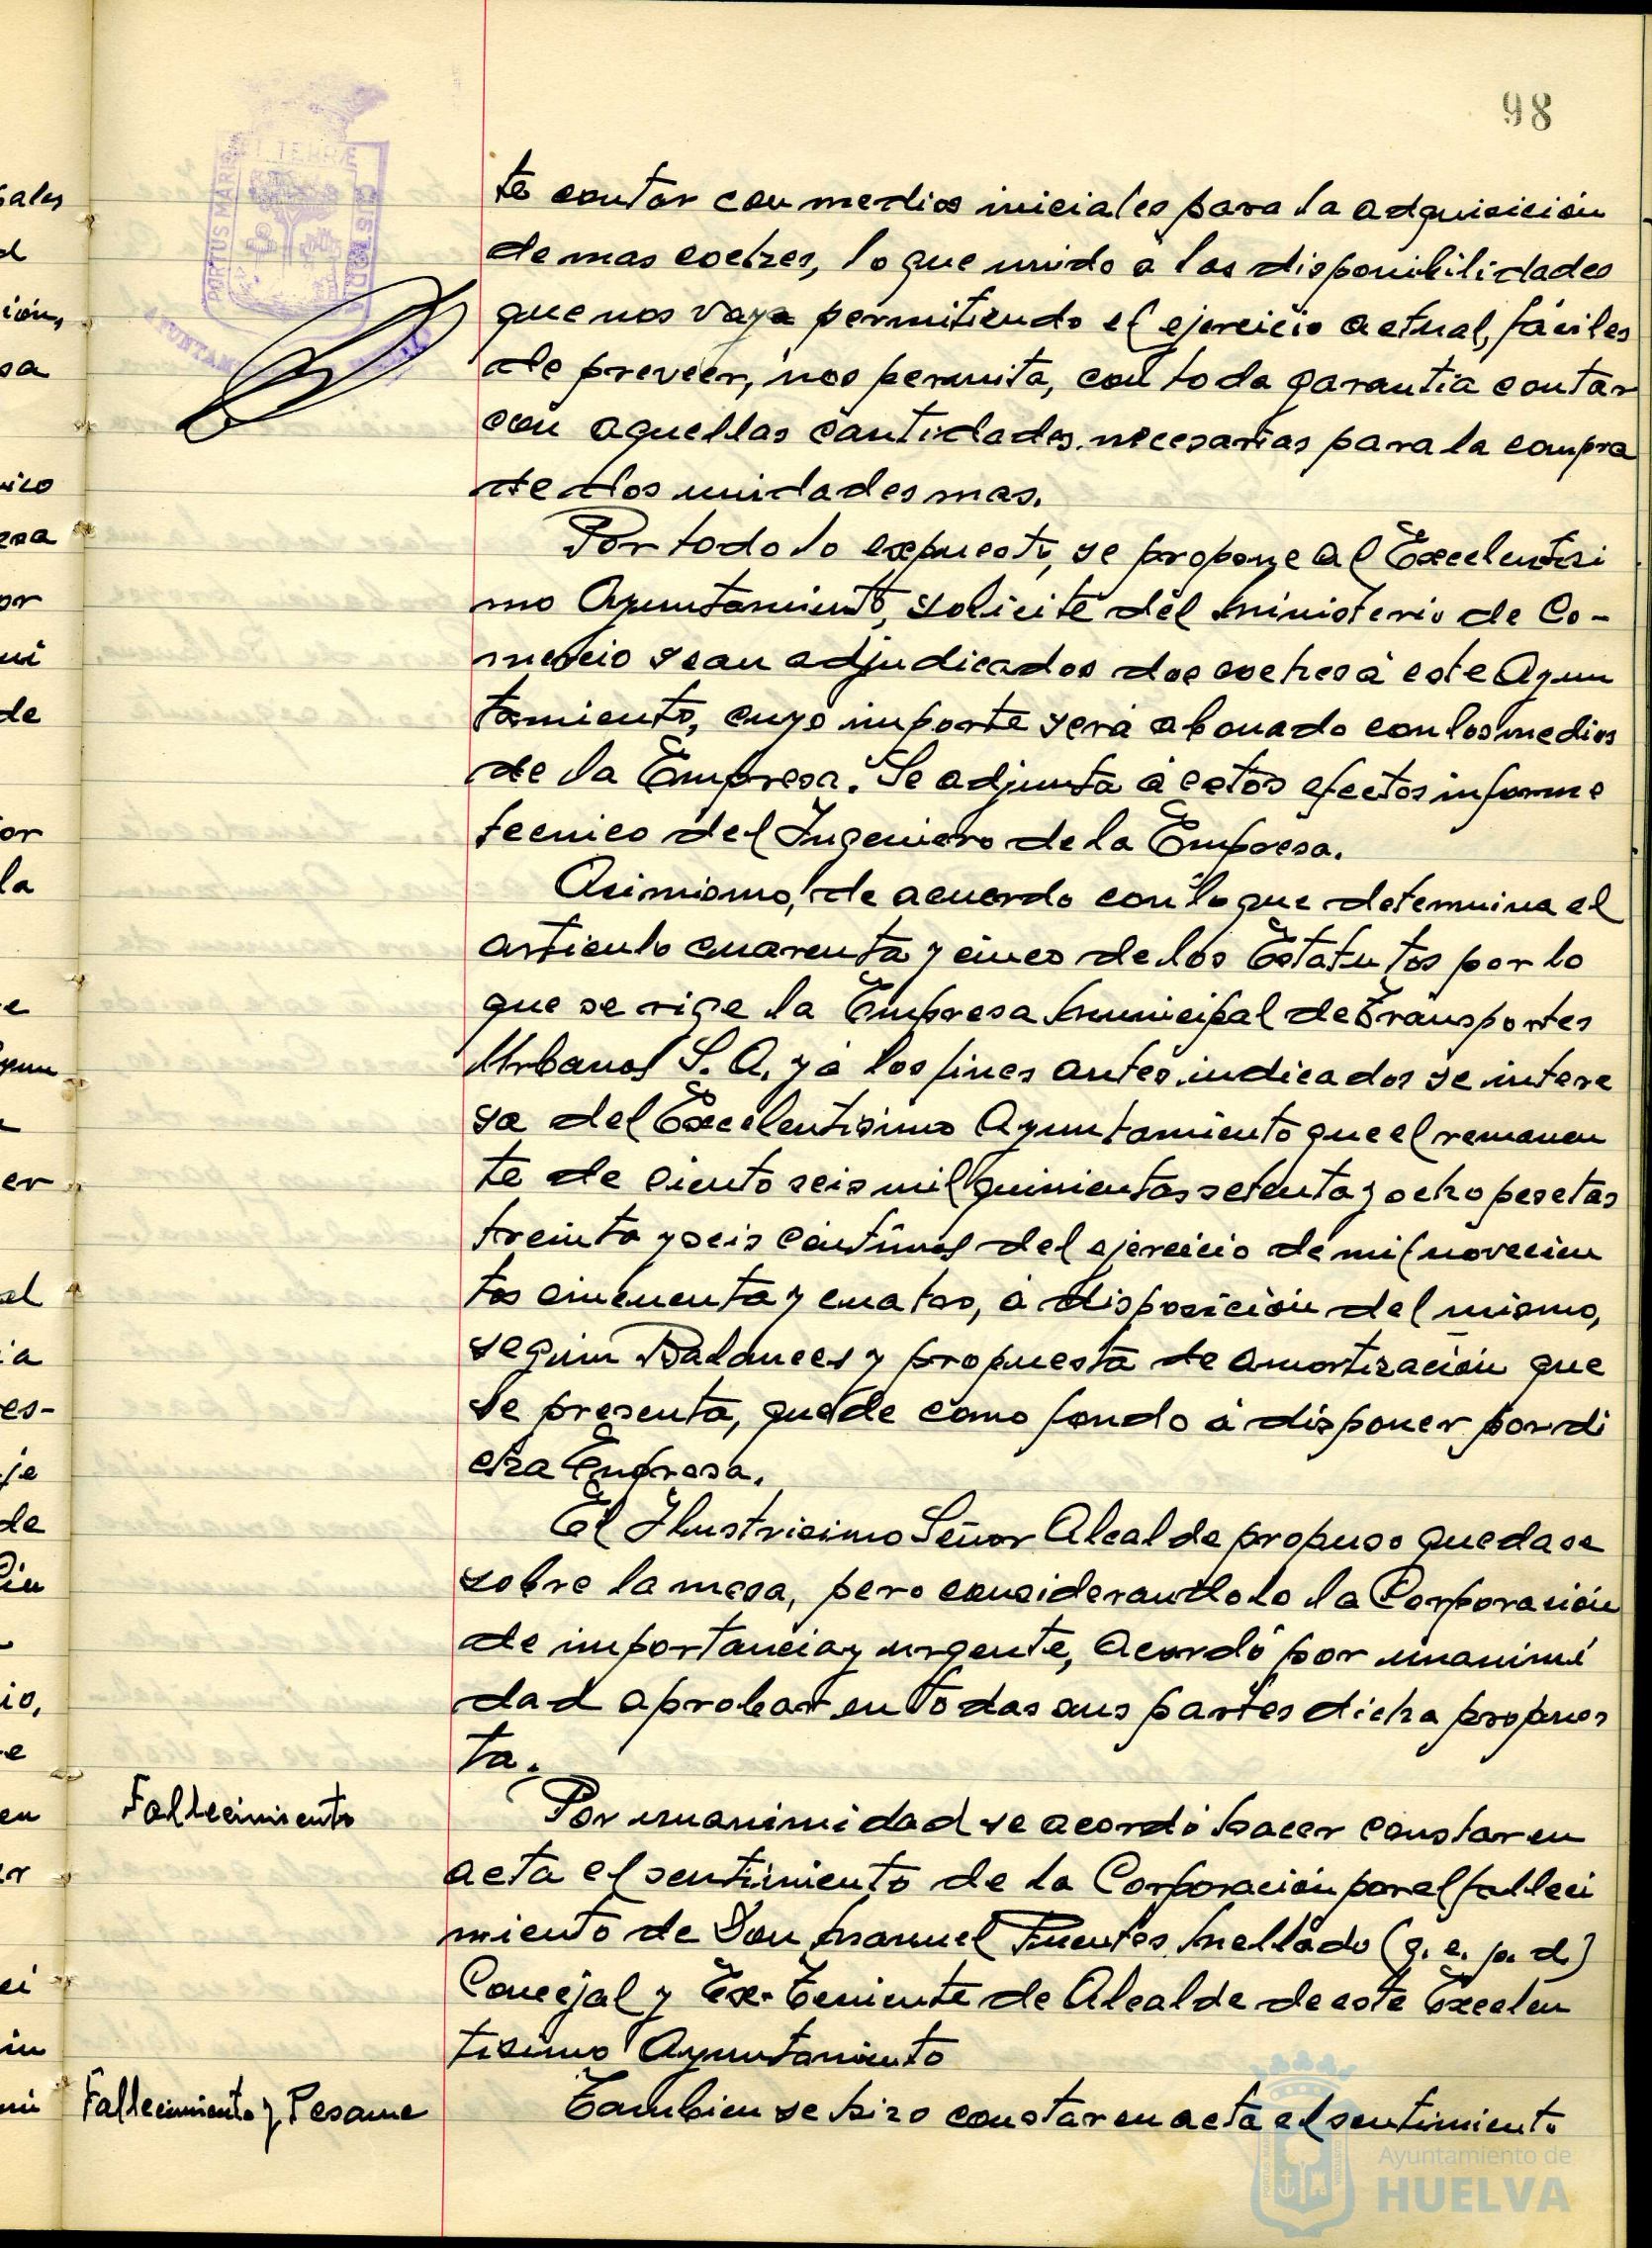 98
te contar con medios iniciales para la adquisición
de mas coches, lo que unido á las disponibilidades
que nos vaya permitiendo el ejercicio actual, fáciles
de preveer, nos permita, con toda garantia contar
con aquellas cantidades necesarias para la compra
de dos unidades mas.
Por todo lo expuesto, se propone al Excelentisi
mo Ayuntamiento, solicite del Ministerio de Co-
mercio sean adjudicados dos coches á este Ayun
tamiento, cuyo importe será abonado con los medios
de la Empresa. Se adjunta á estos efectos informe
tecnico del Ingeniero de la Empresa.
Asimismo, de acuerdo con lo que determina el
articulo cuarenta y cinco de los Estatutos por lo
que se rige la Empresa Municipal de Transportes
Urbanos S. A. y á los fines antes indicados se intere
sa del Excelentisimo Ayuntamiento que el remanen
te de ciento seis mil quinientas setenta y ocho pesetas
treinta y seis centimos del ejercicio de mil novecien
tos cincuenta y cuatro, á disposición del mismo,
según Balances y propuesta de amortización que
se presenta, quede como fondo á disponer por di
cha Empresa.
El Ilustrisimo Señor Alcalde propuso quedase
sobre la mesa, pero considerandolo la Corporación
de importancia y urgente, acordó por unanimi
dad aprobar en todas sus partes dicha propues
ta.
Fallecimiento
Por unanimidad se acordó hacer constar en
acta el sentimiento de la Corporación por el falleci
miento de Don Manuel Fuentes Mellado (q. e. p. d.)
Concejal y Ex-Teniente de Alcalde de este Excelen
tisimo Ayuntamiento
Fallecimiento y Pesame
Tambien se hizo constar en acta el sentimiento
PORTUS MARIS ET TERRÆ CUSTODIA
Ayuntamiento de
HUELVA